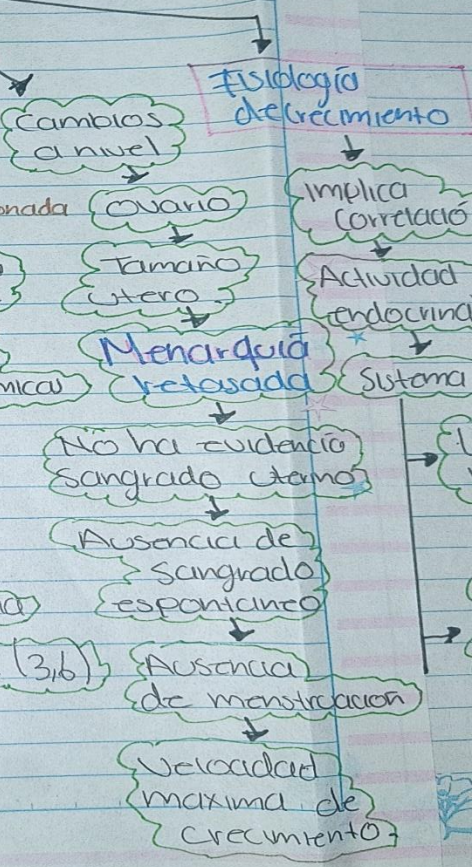 Fisiologia
de crecimiento
Cambios
a nivel
Ovario
Tamaño
utero
Menarquia
retasada
No ha evidencia
Sangrado uterino
Ausencia de
Sangrado
espontaneo
Ausencia
de menstruacion
Velocidad
maxima de
Crecimiento
Implica
Correlació
Actividad
endocrina
Sistema
onada
micas
(3,6)